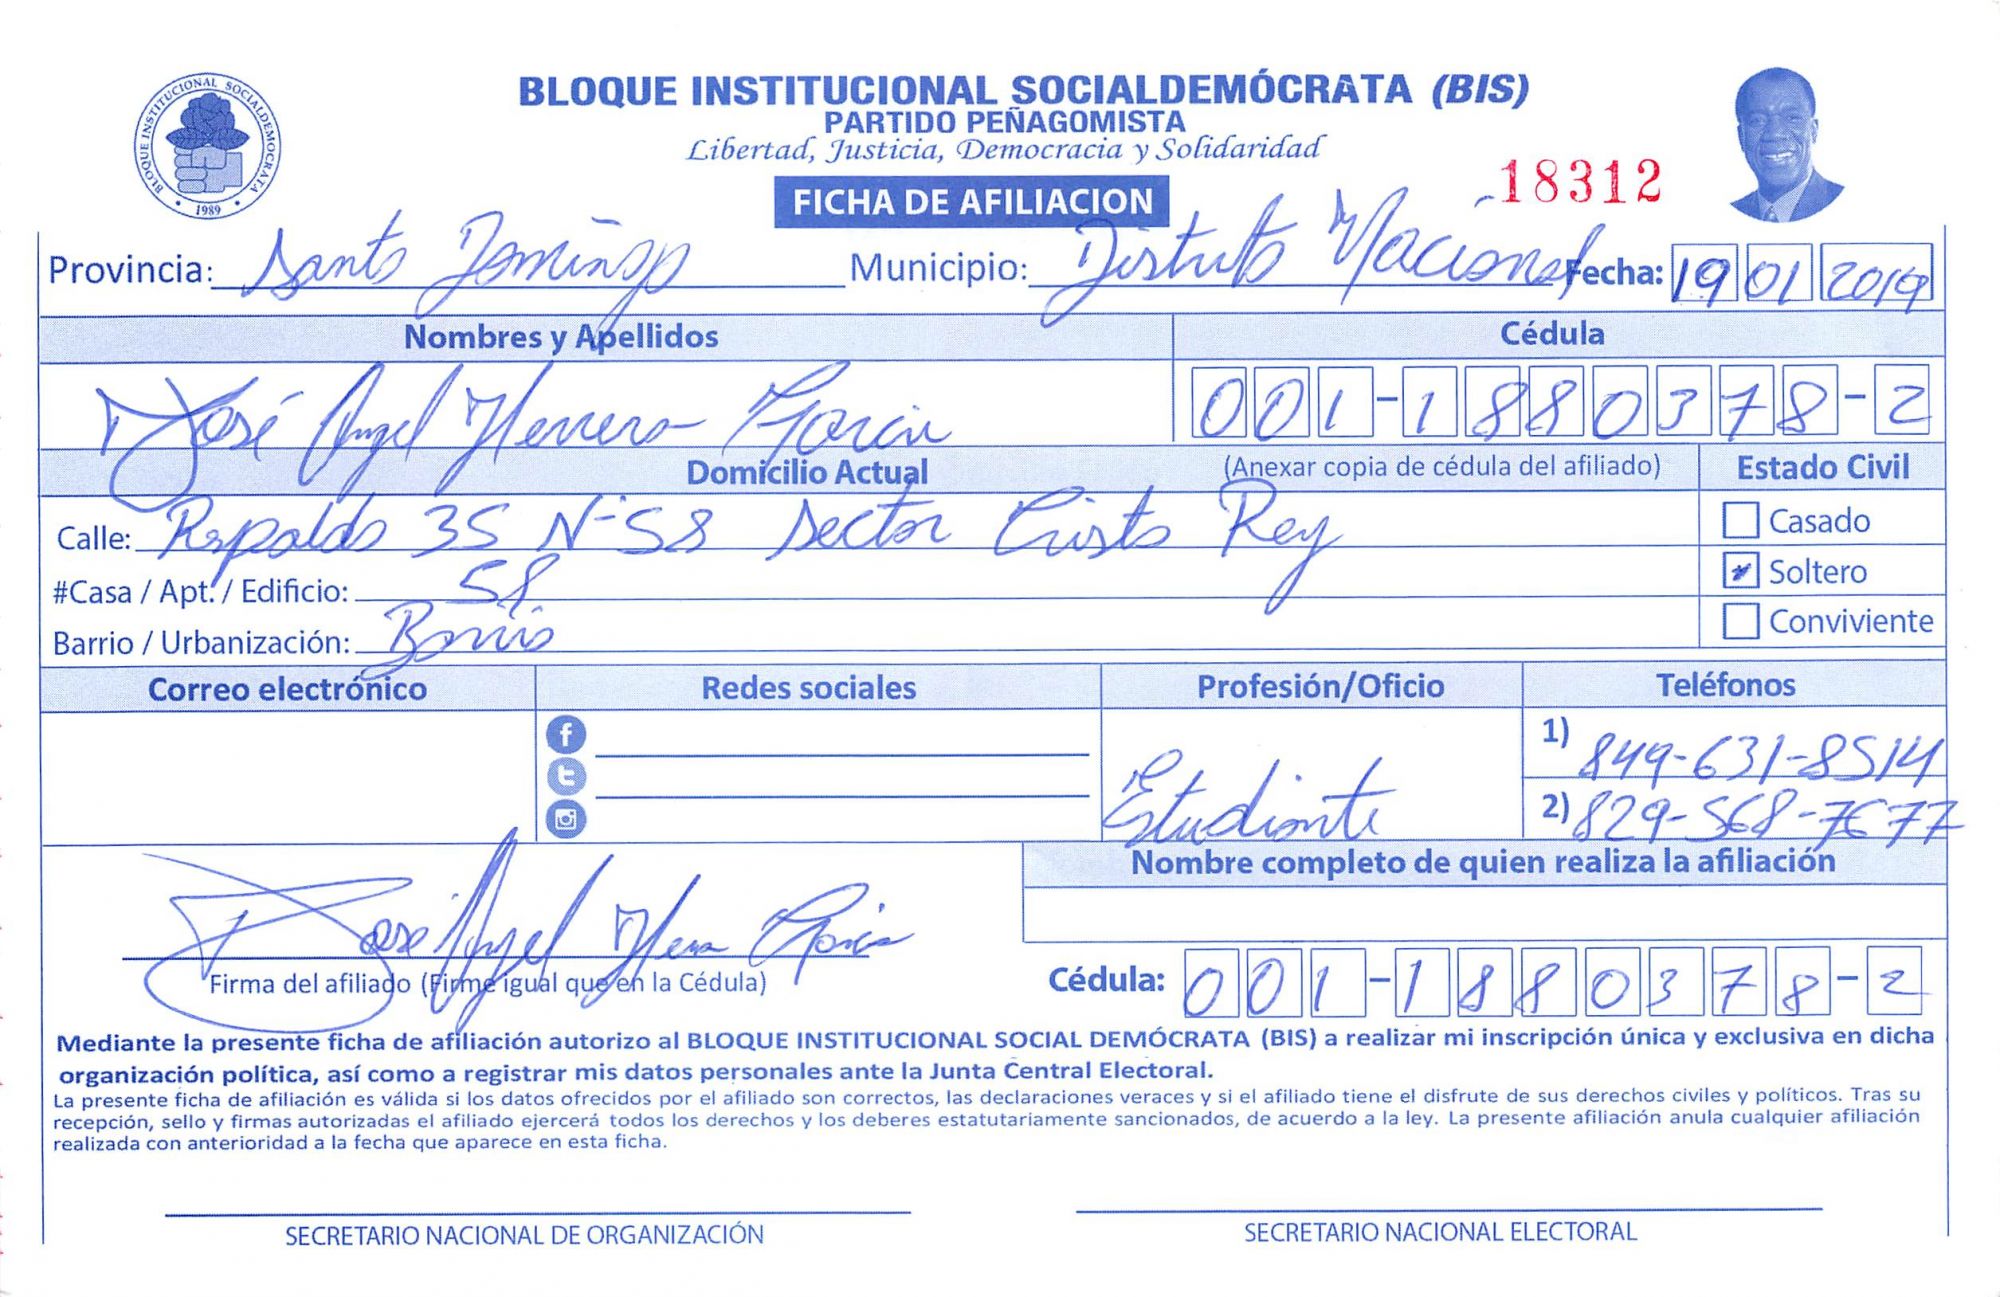 BLOQUE INSTITUCIONAL SOCIALDEMÓCRATA (BIS)
BLOQUE INSTITUCIONAL SOCIALDEMOCRATA
• 1989 •
PARTIDO PEÑAGOMISTA
Libertad, Justicia, Democracia y Solidaridad
18312
FICHA DE AFILIACION
Provincia: Santo Domingo Municipio: Distrito Nacional Fecha: 19 01 2019
Nombres y Apellidos Cédula
José Angel Herrera Garcia 001-1880378-2
Domicilio Actual (Anexar copia de cédula del afiliado) Estado Civil
Calle: Respaldo 35 N-58 sector Cristo Rey Casado
#Casa / Apt. / Edificio: 58 Soltero
Barrio / Urbanización: Barrio Conviviente
Correo electrónico Redes sociales Profesión/Oficio Teléfonos
1) 849-631-8514
Estudiante
2) 829-568-7677
Nombre completo de quien realiza la afiliación
Jose Angel Herrera Garcia
Firma del afiliado (Firme igual que en la Cédula) Cédula: 001-1880378-2
Mediante la presente ficha de afiliación autorizo al BLOQUE INSTITUCIONAL SOCIAL DEMÓCRATA (BIS) a realizar mi inscripción única y exclusiva en dicha
organización política, así como a registrar mis datos personales ante la Junta Central Electoral.
La presente ficha de afiliación es válida si los datos ofrecidos por el afiliado son correctos, las declaraciones veraces y si el afiliado tiene el disfrute de sus derechos civiles y políticos. Tras su
recepción, sello y firmas autorizadas el afiliado ejercerá todos los derechos y los deberes estatutariamente sancionados, de acuerdo a la ley. La presente afiliación anula cualquier afiliación
realizada con anterioridad a la fecha que aparece en esta ficha.
SECRETARIO NACIONAL DE ORGANIZACIÓN SECRETARIO NACIONAL ELECTORAL